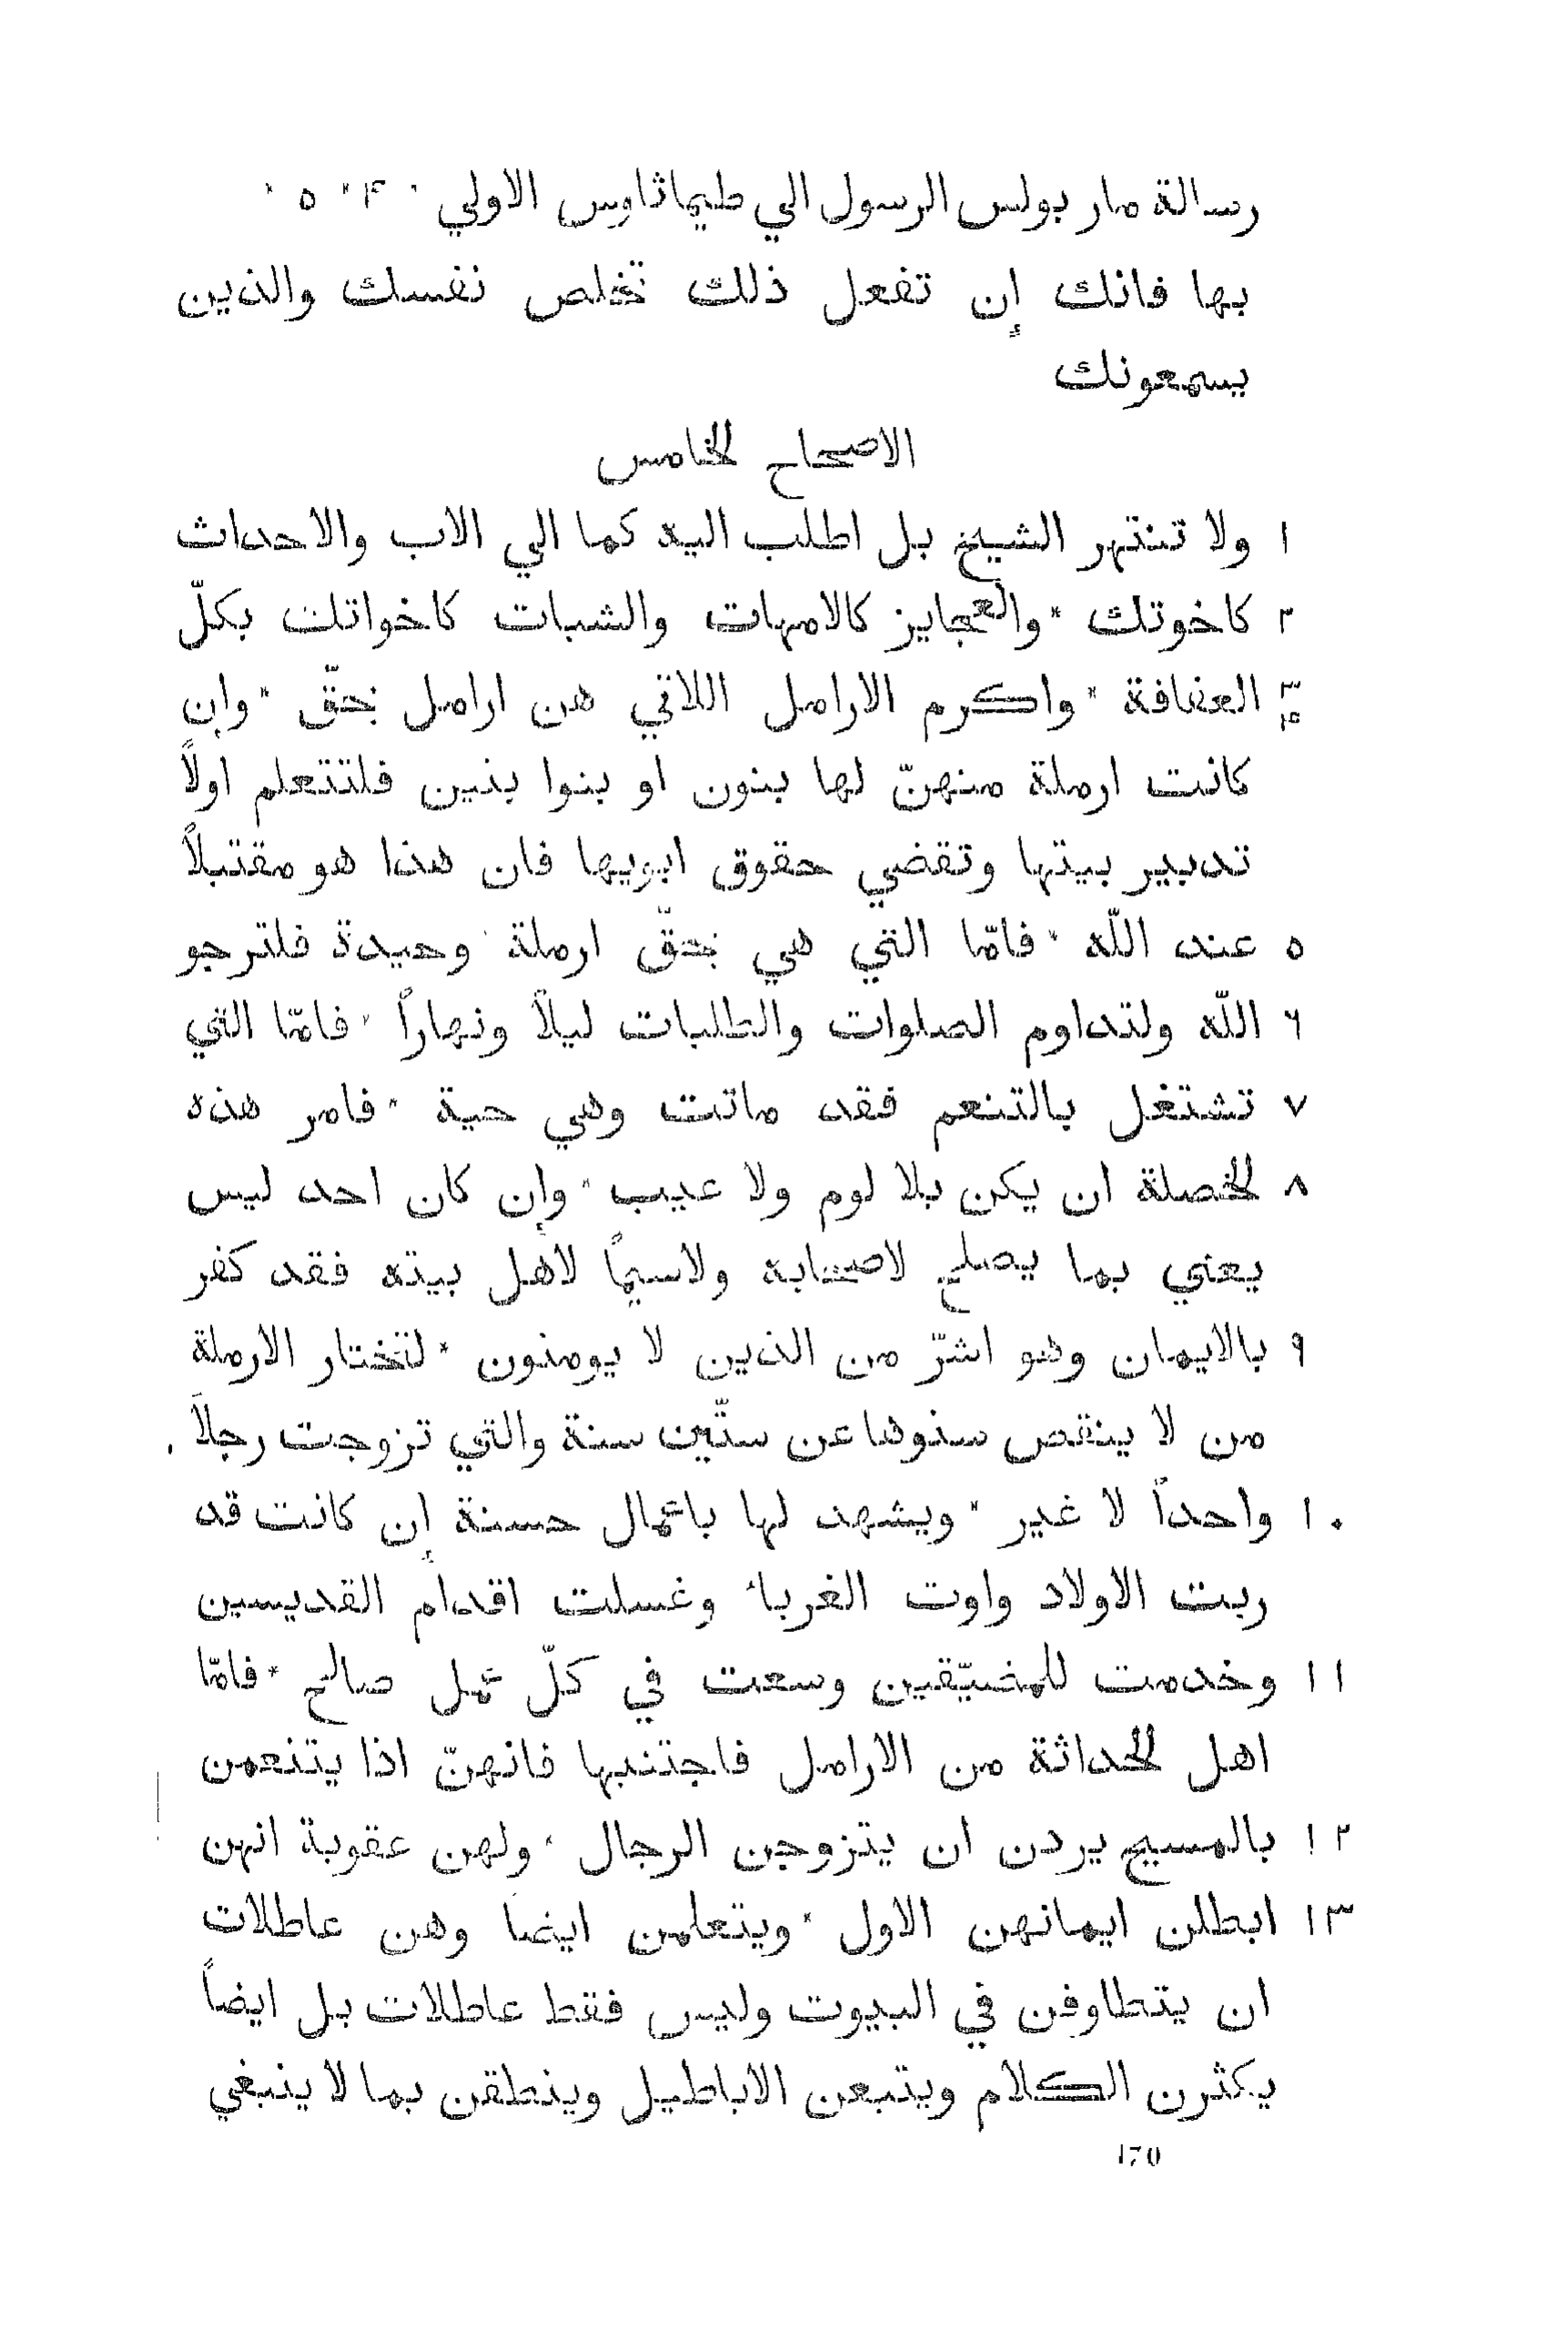 رسالة مار بولس الرسول الي طيماثاوس الاولي * ۴ * ٥ *
بها فانك إن تفعل ذلك تخلص نفسك والذين
يسمعونك
الاصحاح لخامس
١ ولا تنتهر الشيخ بل اطلب اليه كما الي الاب والاحداث
٢ كاخوتك * والعجايز كالامهات والشبات كاخواتك بكلّ
٣ ۴ العفافة * واكرم الارامل اللاتي هن ارامل بحقّ * وإن
كانت ارملة منهنّ لها بنون او بنوا بنين فلتتعلم اولاً
تدبير بيتها وتقضي حقوق ابويها فان هذا هو مقتبلاً
٥ عند اللّه * فامّا التي هي بحقّ ارملة وحيدة فلترجو
٦ اللّه ولتداوم الصلوات والطلبات ليلاً ونهاراً * فامّا التي
٧ تشتغل بالتنعم فقد ماتت وهي حية * فامر هذه
٨ لخصلة ان يكن بلا لوم ولا عيب * وإن كان احد ليس
يعني بما يصلح لاصحابه ولاسيمّا لاهل بيته فقد كفر
٩ بالايمان وهو اشرّ من الذين لا يومنون * لتختار الارملة
من لا ينقص سنوها عن ستّين سنة والتي تزوجت رجلاً
١٠ واحداً لا غير * ويشهد لها باعمال حسنة إن كانت قد
ربت الاولاد واوت الغرباء وغسلت اقدام القديسين
١١ وخدمت للمضيّقين وسعت في كلّ عمل صالح * فامّا
اهل لحداثة من الارامل فاجتنبها فانهنّ اذا يتنعمن
١٢ بالمسيح يردن ان يتزوجن الرجال * ولهن عقوبة انهن
١٣ ابطلن ايمانهن الاول * ويتعلمن ايضاً وهن عاطلات
ان يتطاوفن في البيوت وليس فقط عاطلات بل ايضاً
يكثرن الكلام ويتبعن الاباطيل وينطقن بما لا ينبغي
470